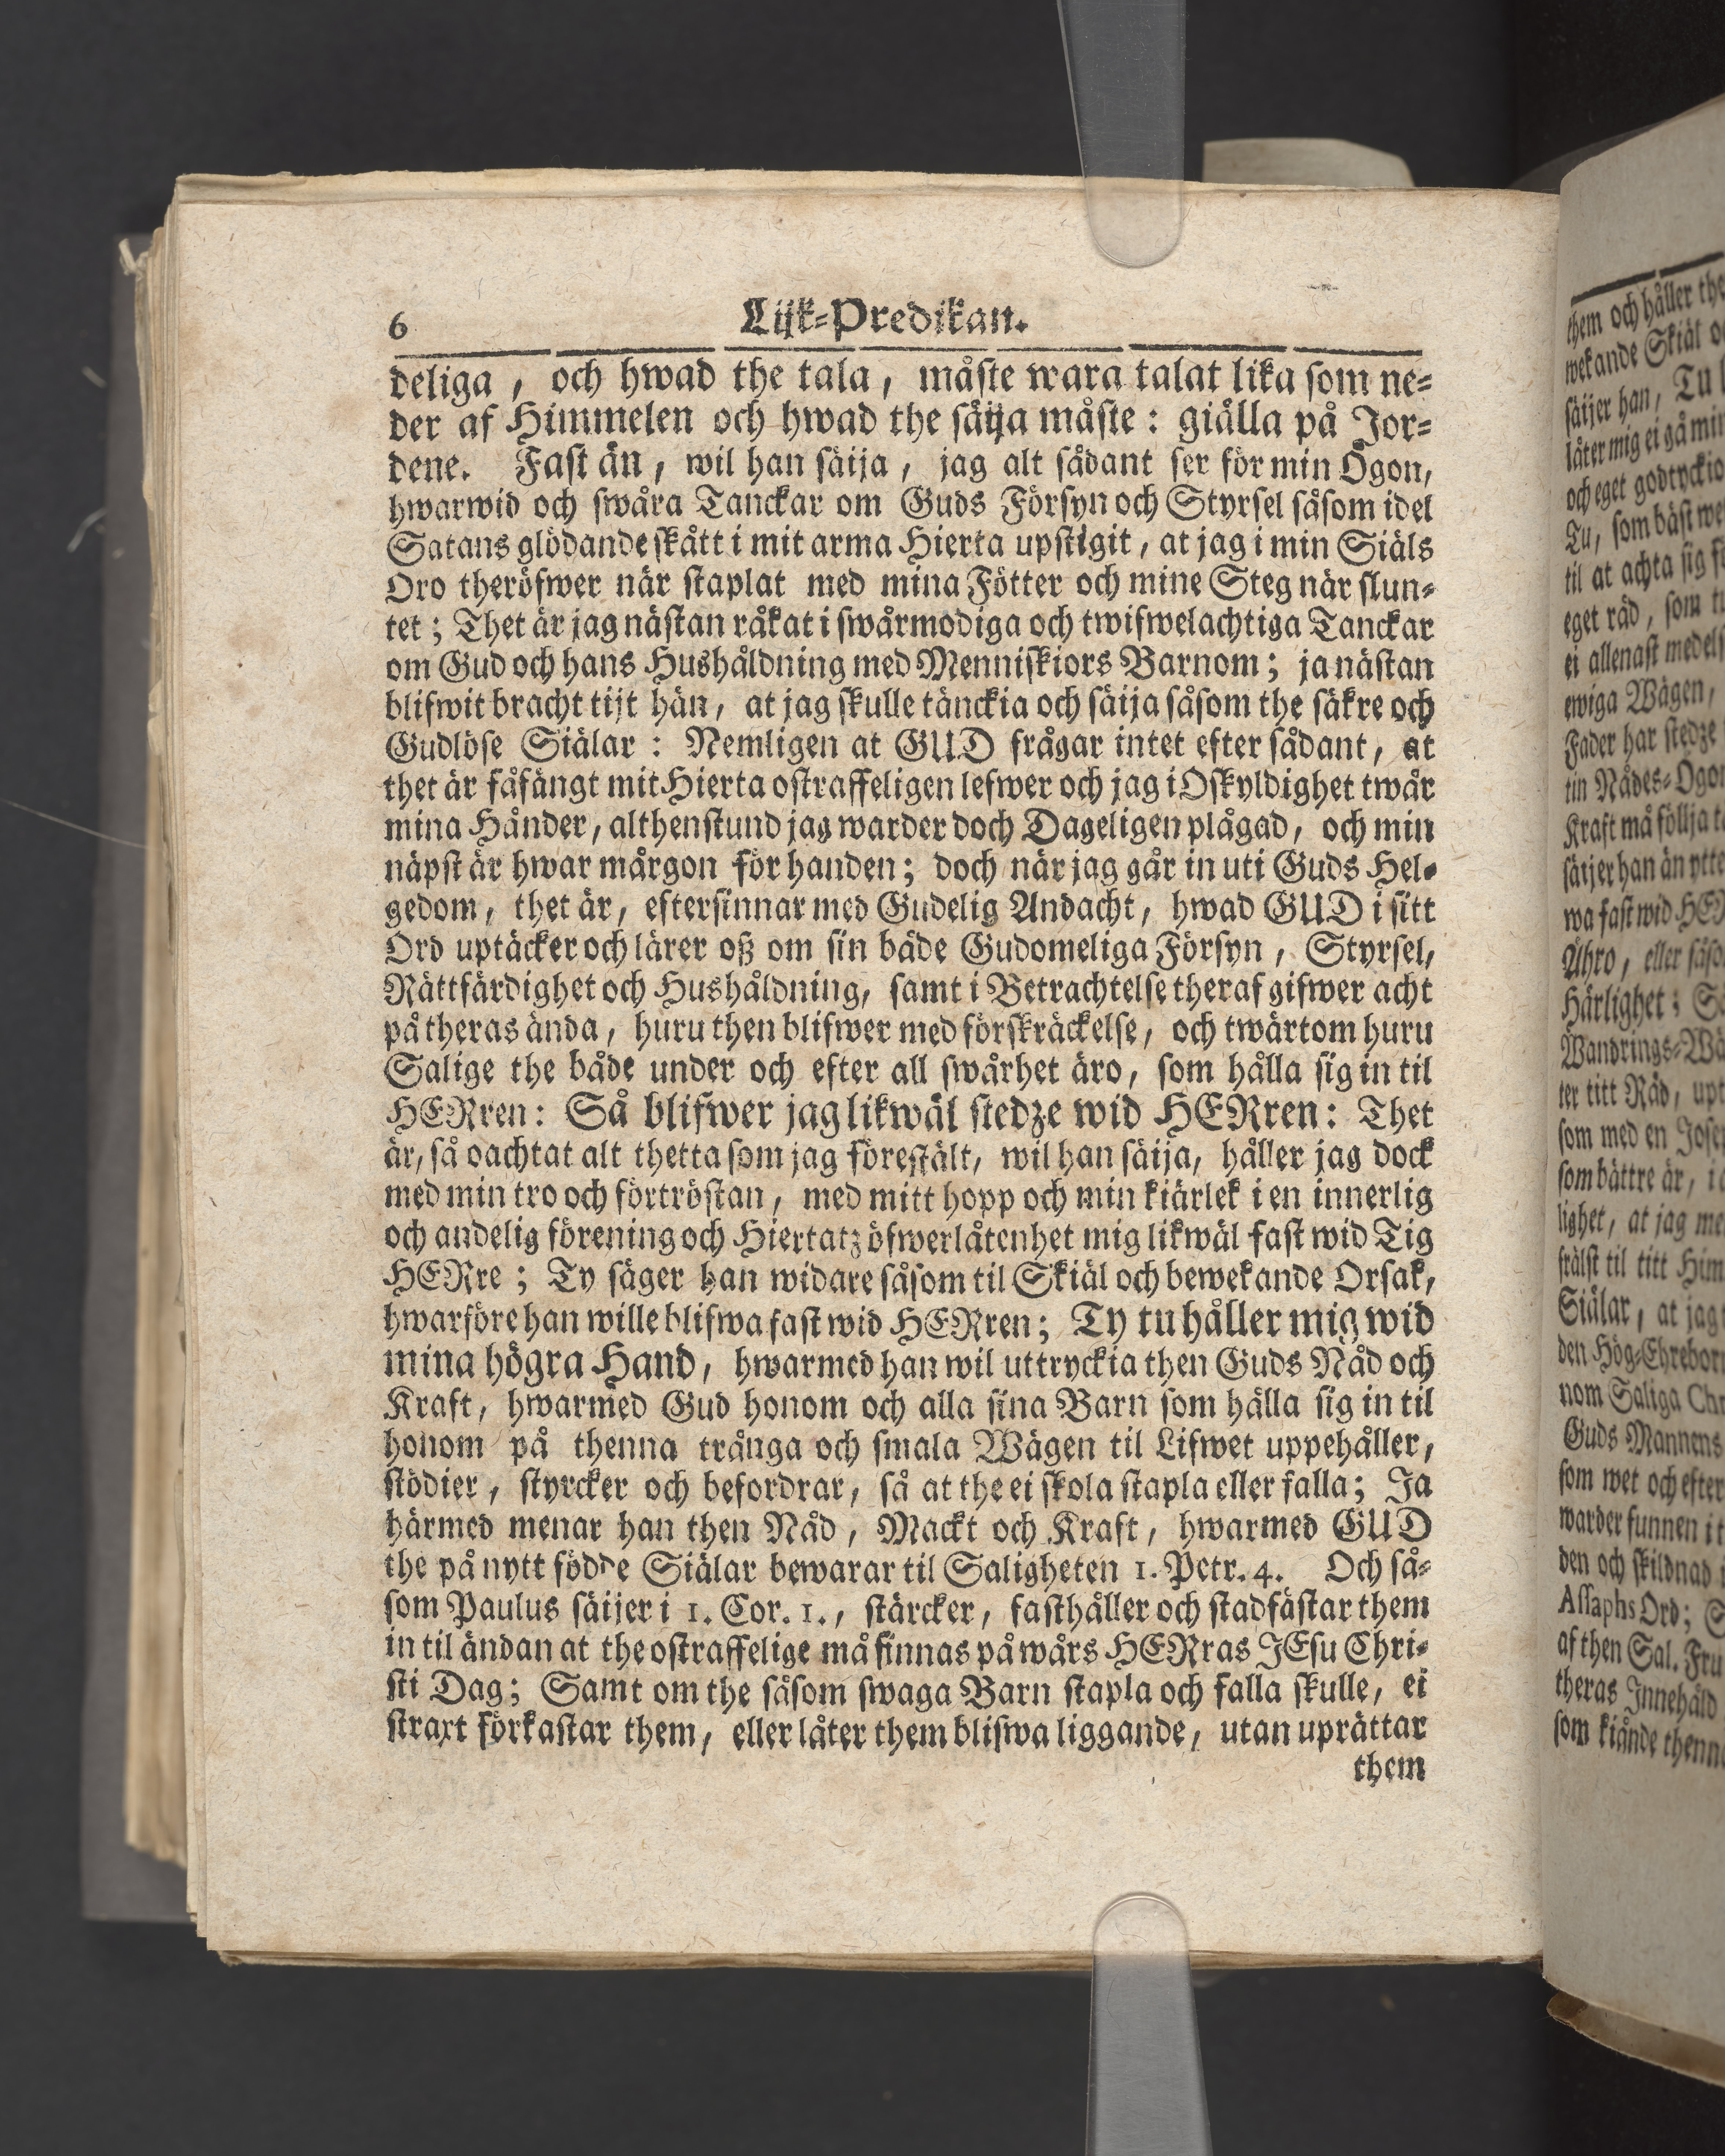 6 Lijk-Predikan.
deliga, och hwad the tala, måste wara talat lika som ne-
der af Himmelen och hwad the säija måste: giälla på Jor-
dene. Fast än, wil han säija, jag alt sådant ser för min Ögon,
hwarwid och swåra Tanckar om Guds Försyn och Styrsel såsom idel
Satans glödande skått i mit arma Hierta upstigit, at jag i min Siäls
Oro theröfwer när staplat med mina Fötter och mine Steg när slun-
tet; Thet är jag nästan råkat i swårmodiga och twifwelachtiga Tanckar
om Gud och hans Hushåldning med Menniskiors Barnom; ja nästan
blifwit bracht tijt hän, at jag skulle tänckia och säija såsom the säkre och
Gudlöse Siälar: Nemligen at GUD frågar intet efter sådant, at
thet är fåfängt mit Hierta ostraffeligen lefwer och jag i Oskyldighet twår
mina Händer, althenstund jag warder doch Dageligen plågad, och min
näpst är hwar mårgon för handen; doch när jag går in uti Guds Hel-
gedom, thet är, eftersinnar med Gudelig Andacht, hwad GUD i sitt
Ord uptäcker och lärer oß om sin både Gudomeliga Försyn, Styrsel,
Rättfärdighet och Hushåldning, samt i Betrachtelse theraf gifwer acht
på theras ända, huru then blifwer med förskräckelse, och twärtom huru
Salige the både under och efter all swårhet äro, som hålla sig in til
HERren: Så blifwer jag likwäl stedze wid HERren: Thet
är, så oachtat alt thetta som jag förestält, wil han säija, håller jag dock
med min tro och förtröstan, med mitt hopp och min kiärlek i en innerlig
och andelig förening och Hiertatz öfwerlåtenhet mig likwäl fast wid Tig
HERre; Ty säger han widare såsom til Skiäl och bewekande Orsak,
hwarföre han wille blifwa fast wid HERren; Ty tu håller mig wid
mina högra Hand, hwarmed han wil uttryckia then Guds Nåd och
Kraft, hwarmed Gud honom och alla sina Barn som hålla sig in til
honom på thenna trånga och smala Wägen til Lifwet uppehåller,
stödier, styrcker och befordrar, så at the ei skola stapla eller falla; Ja
härmed menar han then Nåd, Mackt och Kraft, hwarmed GUD
the på nytt födde Siälar bewarar til Saligheten 1. Petr. 4. Och så-
som Paulus säijer i 1. Cor. 1., stärcker, fasthåller och stadfästar them
in til ändan at the ostraffelige må finnas på wårs HERras JEsu Chri-
sti Dag; Samt om the såsom swaga Barn stapla och falla skulle, ei
straxt förkastar them, eller låter them blifwa liggande, utan uprättar
them
them och håller the
wekande Skiäl o
säijer han, Tu
låter mig ei gå min
och eget godtyckio
Tu, som bäst we
til at achta sig
eget råd, som
ei allenast medels
ewiga Wägen,
Fader har stedze
tin Nådes-Ögon
Kraft må föllja
säijer han än ytte
wa fast wid HER
Ähro, eller såso
Härlighet; S
Wandrings-Wä
ter titt Råd, upt
som med en Jose
som bättre är, i
lighet, at jag me
frälst til titt Him
Siälar, at jag
den Hög-Ehrebor
nom Saliga Chr
Guds Mannens
som wet och efter
warder funnen i t
den och skildnad
Assaphs Ord; S
af then Sal. Fru
theras Innehåld
som kiände thenn